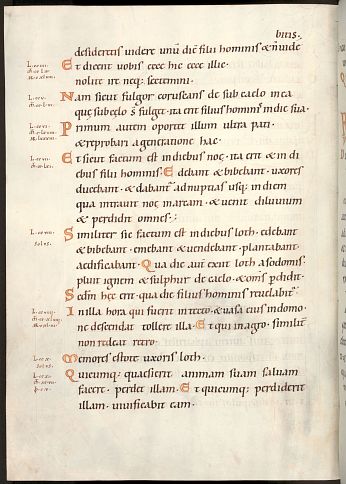 bitis.
desideretis uidere unū diē filii hominis & n̄ uide
Et dicent uobis ecce hic ecce illic
nolite ire neq; sectemini.
Nam sicut fulgor coruscans de sub caelo in ea
quę sub cęlo s̄ fulget. ita erit filius hominis in die sua.
Primum autem oportet illum ultra pati.
& reprobari a generatione hac.
Et sicut factum est in diebus noę. ita erit & in di
ebus filii hominis. Edebant & bibebant. uxores
ducebant. & dabant̄ ad nuptias usq; in diem
qua intrauit noę in arcam. & uenit diluuium
& perdidit omnes.
Similiter sic factum est in diebus loth. edebant
& bibebant. emebant & uendebant. plantabant.
aedificabant. Qua die aut̄ exiit loth a sodomis.
pluit ignem & sulphur de caelo. & om̄s p̄didit.
Sedm̄ hęc erit. qua die filius hominis reuelabit̄.
In illa hora qui fuerit in tecto. & uasa eius in domo.
ne descendat tollere illa. Et qui in agro. similit̄
non redeat retro.
Memores estote uxoris loth.
Quicumq; quaesierit animam suam saluam
facere. perdet illam. Et quicumq; perdiderit
illam. uiuificabit eam.